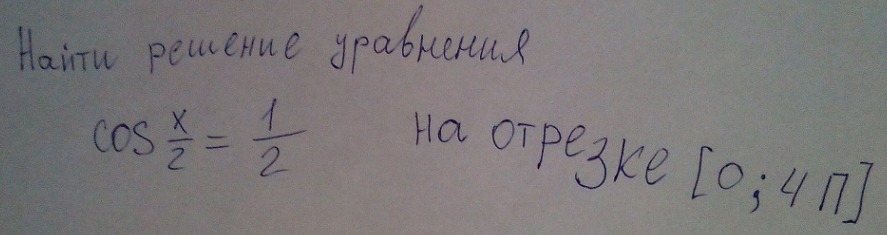 Найти решение уравнения
cos x/2 = 1/2 на отрезке [0; 4П]